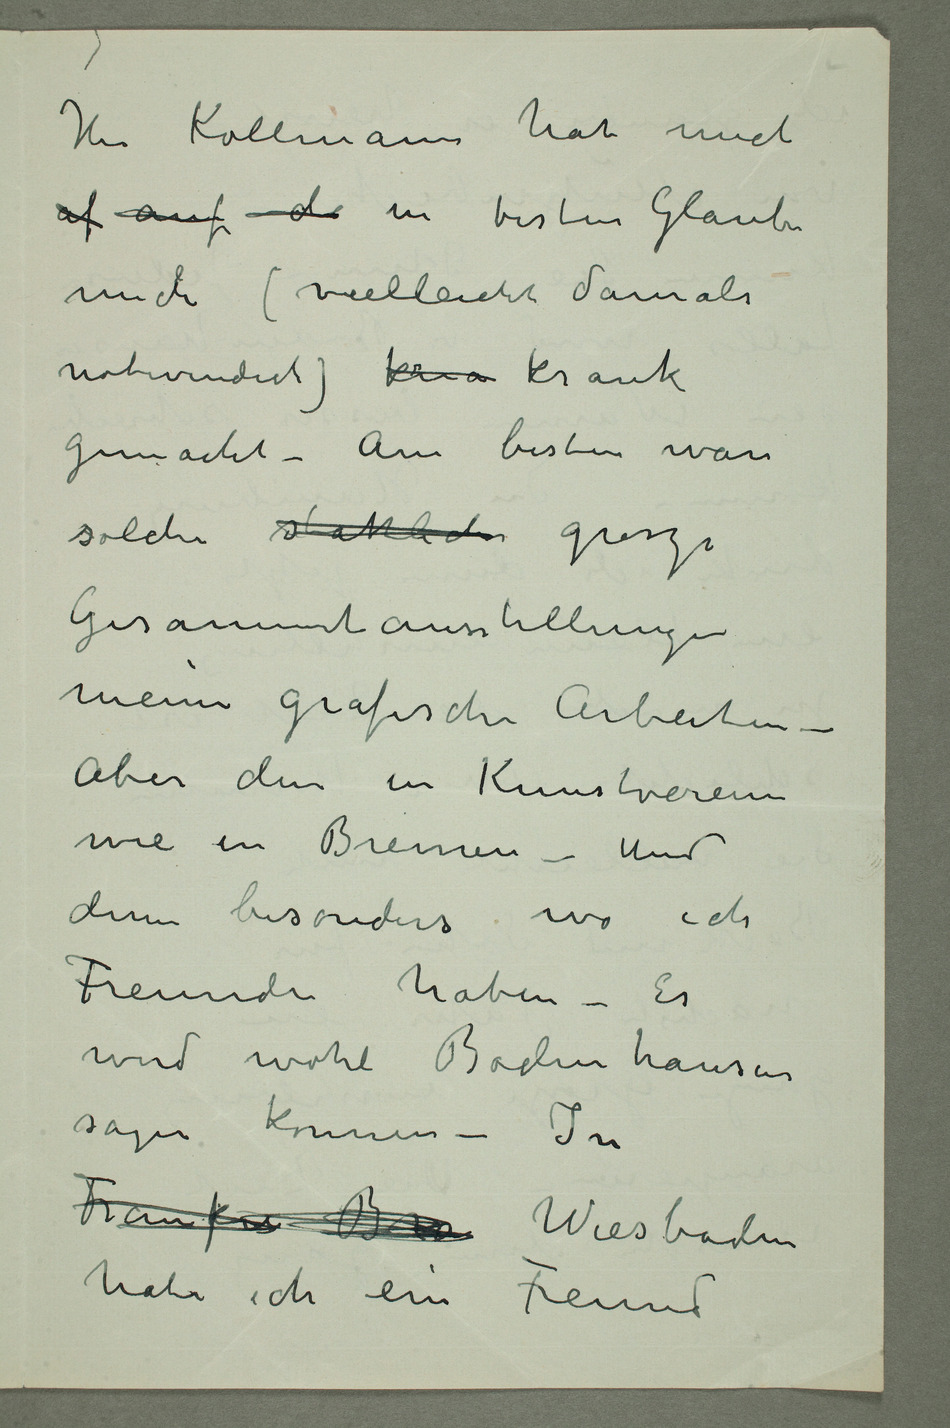 Herr Kollmann hat mich
af auf de in besten Glauben
mich (vielleicht damals
notwendich) kra krank
gemacht – Am besten wäre
solche stattliche grosze
Gesammtausstellungen
meine grafische Arbeiten –
Aber denn in Kunstverein
wie in Bremen – Und
denn besonders wo ich
Freunde haben – Es
wird wohl Bodenhausen
sagen können – In
Frankfu Bre Wiesbaden
habe ich ein Freund